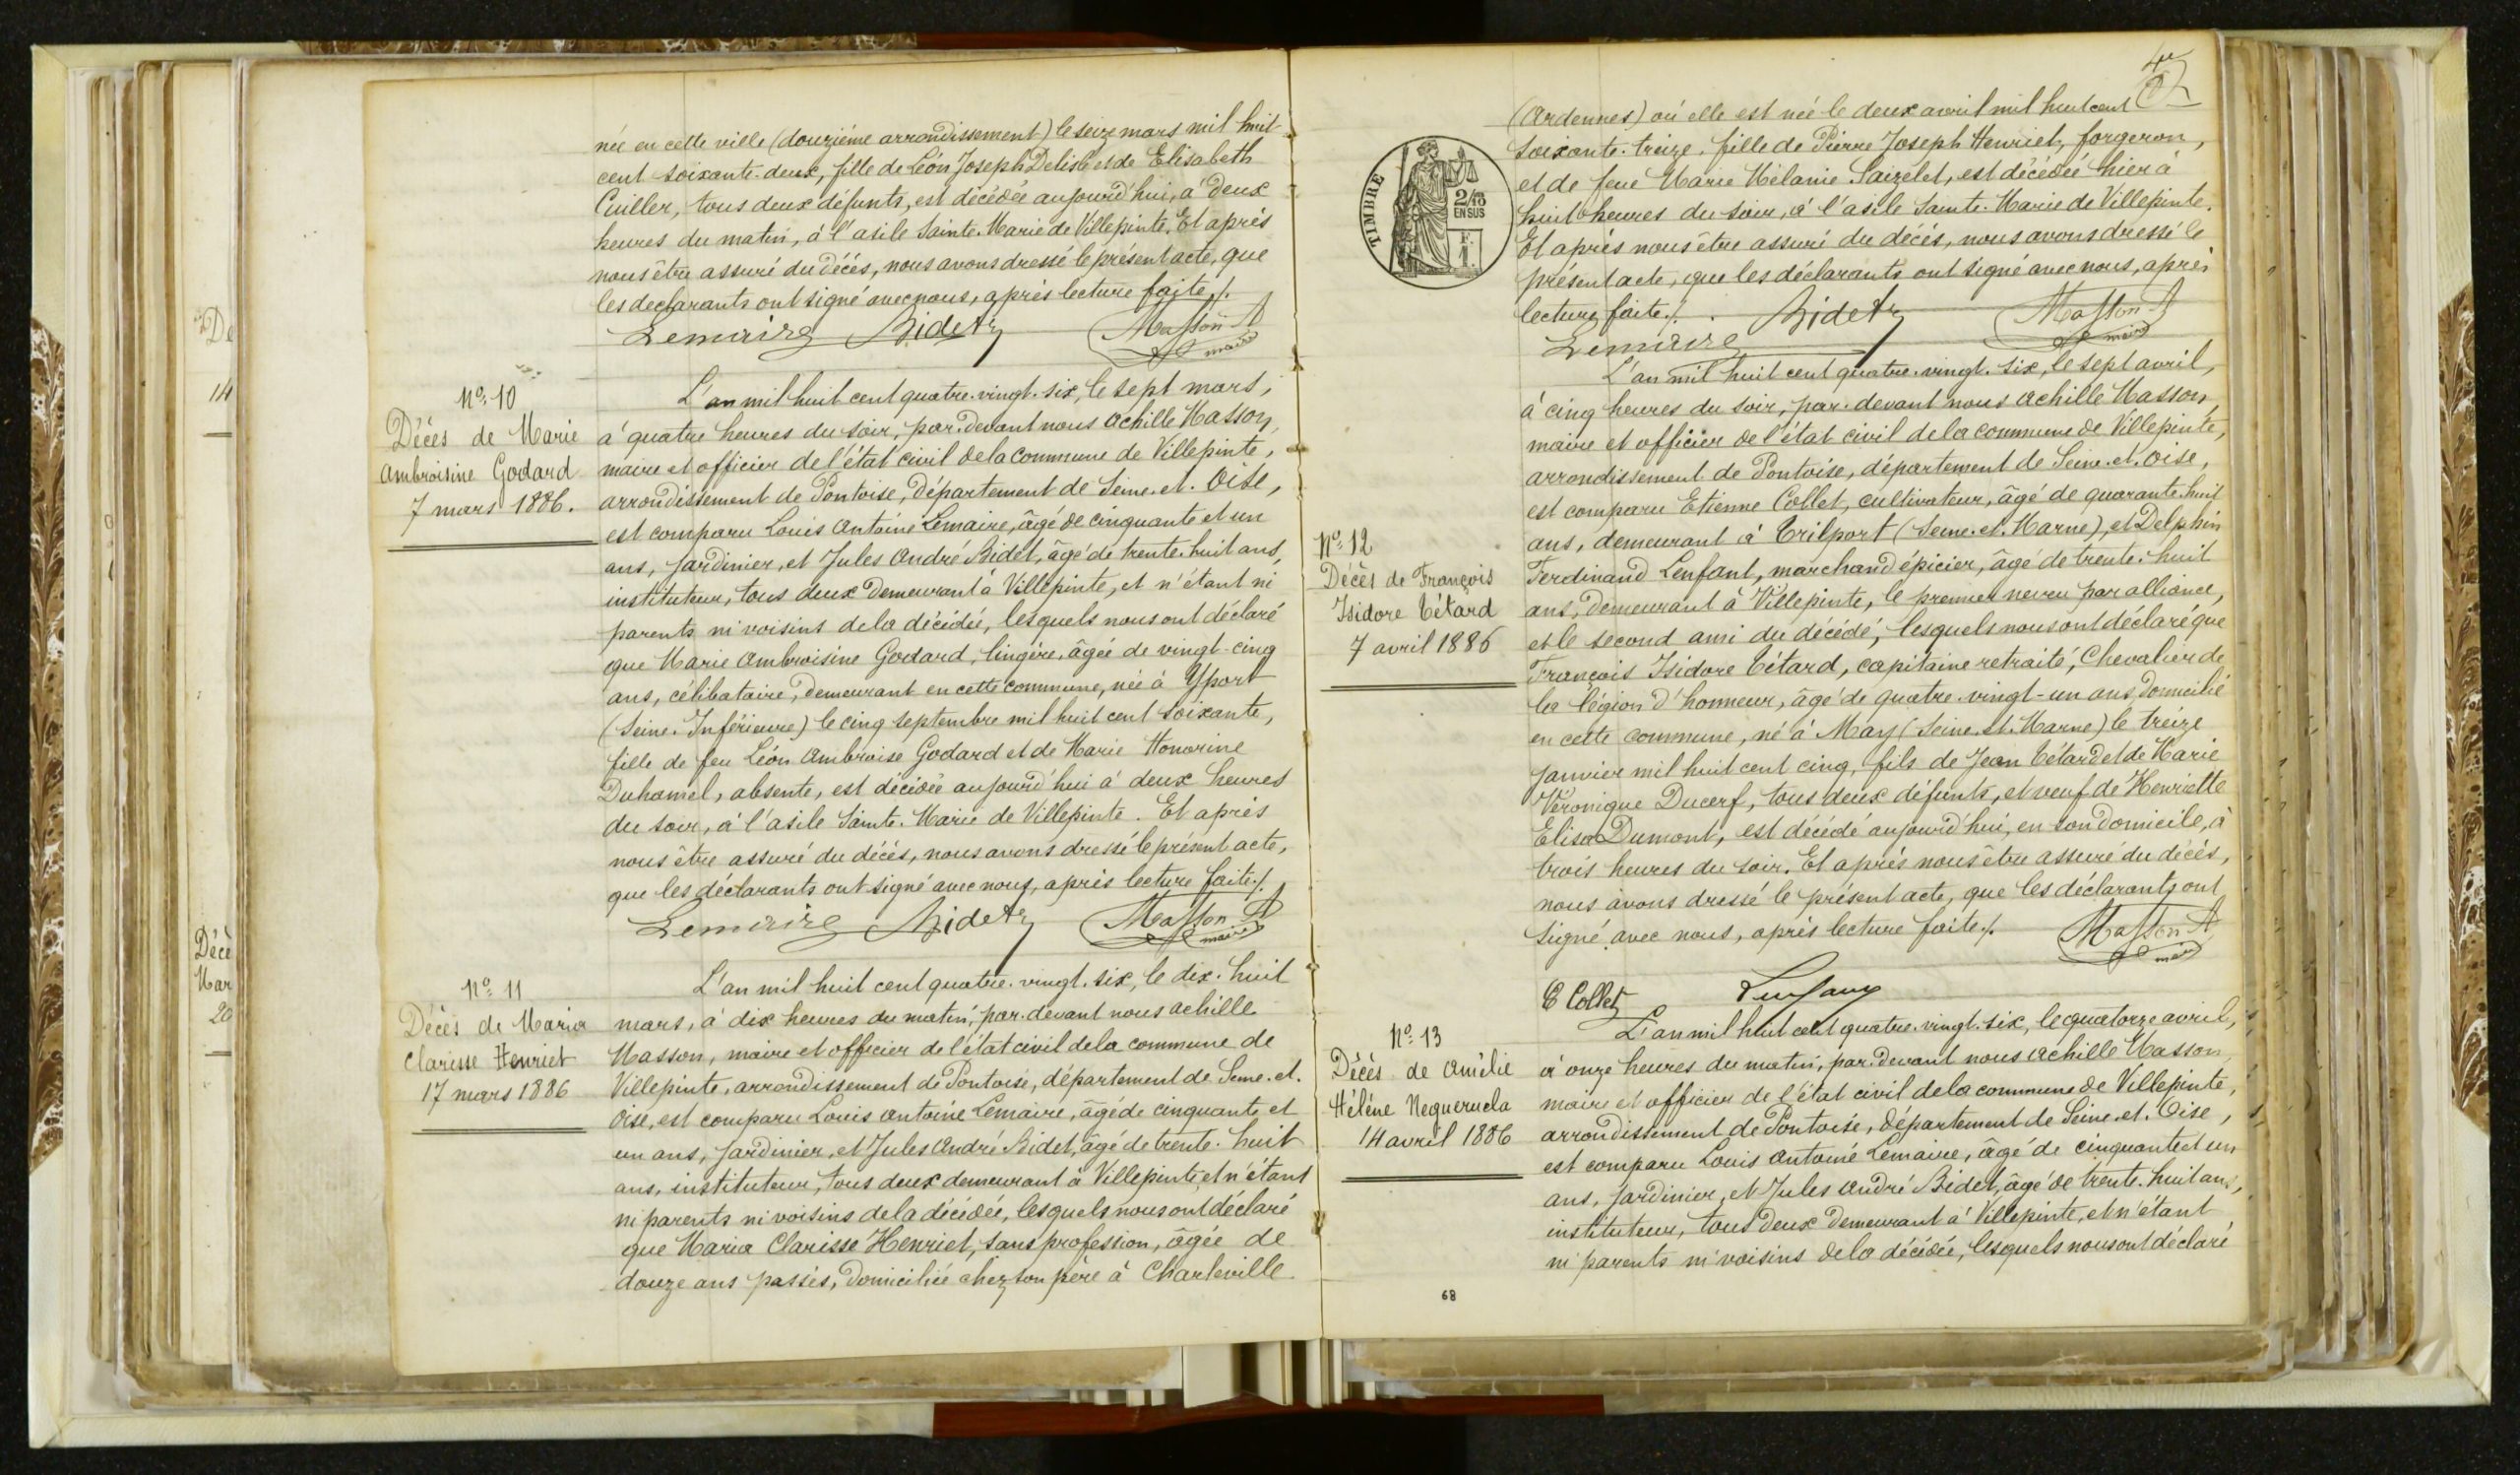 De
14
Décè
Mar
20
née en cette ville (douzième arrondissement) le seize mars mil huit
cent soixante-deux, fille de Léon Joseph Delisle et de Elisabeth
Cuiller, tous deux défunts, est décédée aujourd'hui, à deux
heures du matin, à l'asile Sainte-Marie de Villepinte. Et après
nous être assuré du décès, nous avons dressé le présent acte, que
les déclarants ont signé avec nous, après lecture faite./.
Lemaire Bidet Masson A
maire
N° 10
Décès de Marie
Ambroisine Godard
7 mars 1886.
L'an mil huit cent quatre-vingt-six, le sept mars,
à quatre heures du soir, par-devant nous Achille Masson,
maire et officier de l'état civil de la commune de Villepinte,
arrondissement de Pontoise, département de Seine-et-Oise,
est comparu Louis Antoine Lemaire, âgé de cinquante et un
ans, jardinier, et Jules André Bidet, âgé de trente-huit ans,
instituteur, tous deux demeurant à Villepinte, et n'étant ni
parents ni voisins de la décédée, lesquels nous ont déclaré
que Marie Ambroisine Godard, lingère, âgée de vingt-cinq
ans, célibataire, demeurant en cette commune, née à Yport
(Seine-Inférieure) le cinq septembre mil huit cent soixante,
fille de feu Léon Ambroise Godard et de Marie Honorine
Duhamel, absente, est décédée aujourd'hui à deux heures
du soir, à l'asile Sainte-Marie de Villepinte. Et après
nous être assuré du décès, nous avons dressé le présent acte,
que les déclarants ont signé avec nous, après lecture faite./.
Lemaire Bidet Masson A
maire
N° 11
Décès de Maria
Clarisse Henriet
17 mars 1886
L'an mil huit cent quatre-vingt-six, le dix-huit
mars, à dix heures du matin, par-devant nous Achille
Masson, maire et officier de l'état civil de la commune de
Villepinte, arrondissement de Pontoise, département de Seine-et-
Oise, est comparu Louis Antoine Lemaire, âgé de cinquante et
un ans, jardinier, et Jules André Bidet, âgé de trente-huit
ans, instituteur, tous deux demeurant à Villepinte, et n'étant
ni parents ni voisins de la décédée, lesquels nous ont déclaré
que Maria Clarisse Henriet, sans profession, âgée de
douze ans passés, domiciliée chez son père à Charleville
TIMBRE
2/10
EN SUS
F.
1.
(Ardennes) où elle est née le deux avril mil huit cent
soixante-treize, fille de Pierre Joseph Henriet, forgeron,
et de feue Marie Mélanie Saizelet, est décédée hier à
huit heures du soir, à l'asile Sainte-Marie de Villepinte.
Et après nous être assuré du décès, nous avons dressé le
présent acte, que les déclarants ont signé avec nous, après
lecture faite./. Bidet Masson A
Lemaire maire
N° 12
Décès de François
Isidore Bétard
7 avril 1886
L'an mil huit cent quatre-vingt-six, le sept avril,
à cinq heures du soir, par-devant nous Achille Masson,
maire et officier de l'état civil de la commune de Villepinte,
arrondissement de Pontoise, département de Seine-et-Oise,
est comparu Etienne Collet, cultivateur, âgé de quarante-huit
ans, demeurant à Trilport (Seine-et-Marne), et Delphin
Ferdinand Lenfant, marchand épicier, âgé de trente-huit
ans, demeurant à Villepinte, le premier neveu par alliance,
et le second ami du décédé, lesquels nous ont déclaré que
François Isidore Bétard, capitaine retraité, Chevalier de
la légion d'honneur, âgé de quatre-vingt-un ans, domicilié
en cette commune, né à May (Seine-et-Marne) le treize
janvier mil huit cent cinq, fils de Jean Bétard et de Marie
Véronique Ducerf, tous deux défunts, et veuf de Henriette
Elisa Dumont, est décédé aujourd'hui, en son domicile, à
trois heures du soir. Et après nous être assuré du décès,
nous avons dressé le présent acte, que les déclarants ont
signé avec nous, après lecture faite./. Masson A
maire
E Collet Lenfant
N° 13
Décès de Amélie
Hélène Negueruela
14 avril 1886
L'an mil huit cent quatre-vingt-six, le quatorze avril,
à onze heures du matin, par-devant nous Achille Masson,
maire et officier de l'état civil de la commune de Villepinte,
arrondissement de Pontoise, département de Seine-et-Oise,
est comparu Louis Antoine Lemaire, âgé de cinquante et un
ans, jardinier, et Jules André Bidet, âgé de trente-huit ans,
instituteur, tous deux demeurant à Villepinte, et n'étant
ni parents ni voisins de la décédée, lesquels nous ont déclaré
68